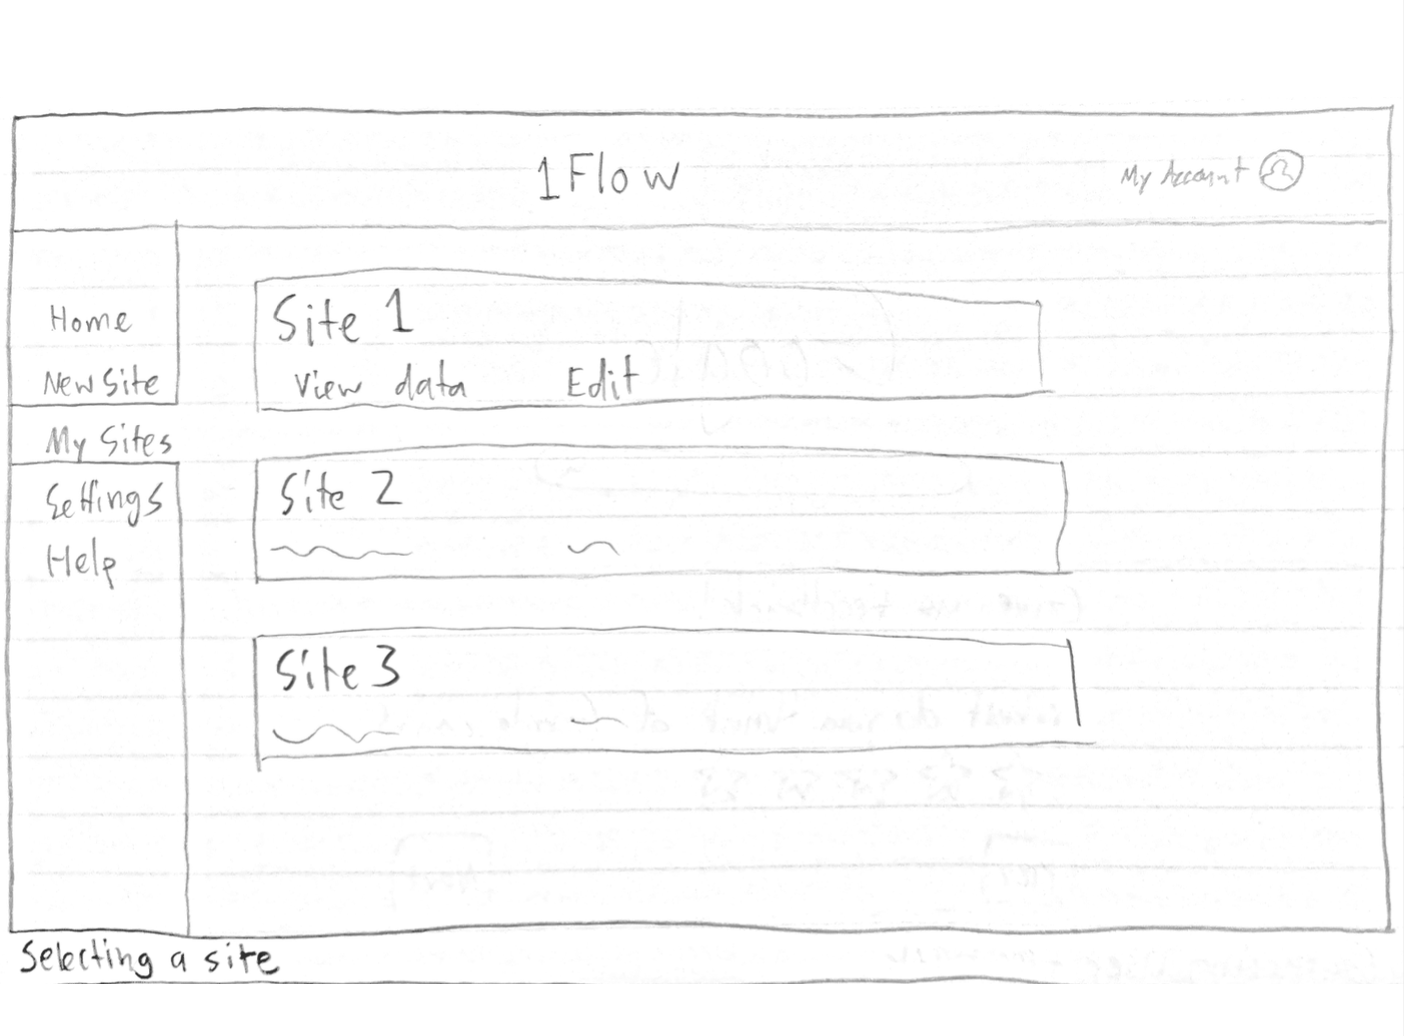 1Flow
My Account
Home
New Site
My Sites
Settings
Help
Site 1
View data Edit
Site 2
Site 3
Selecting a site